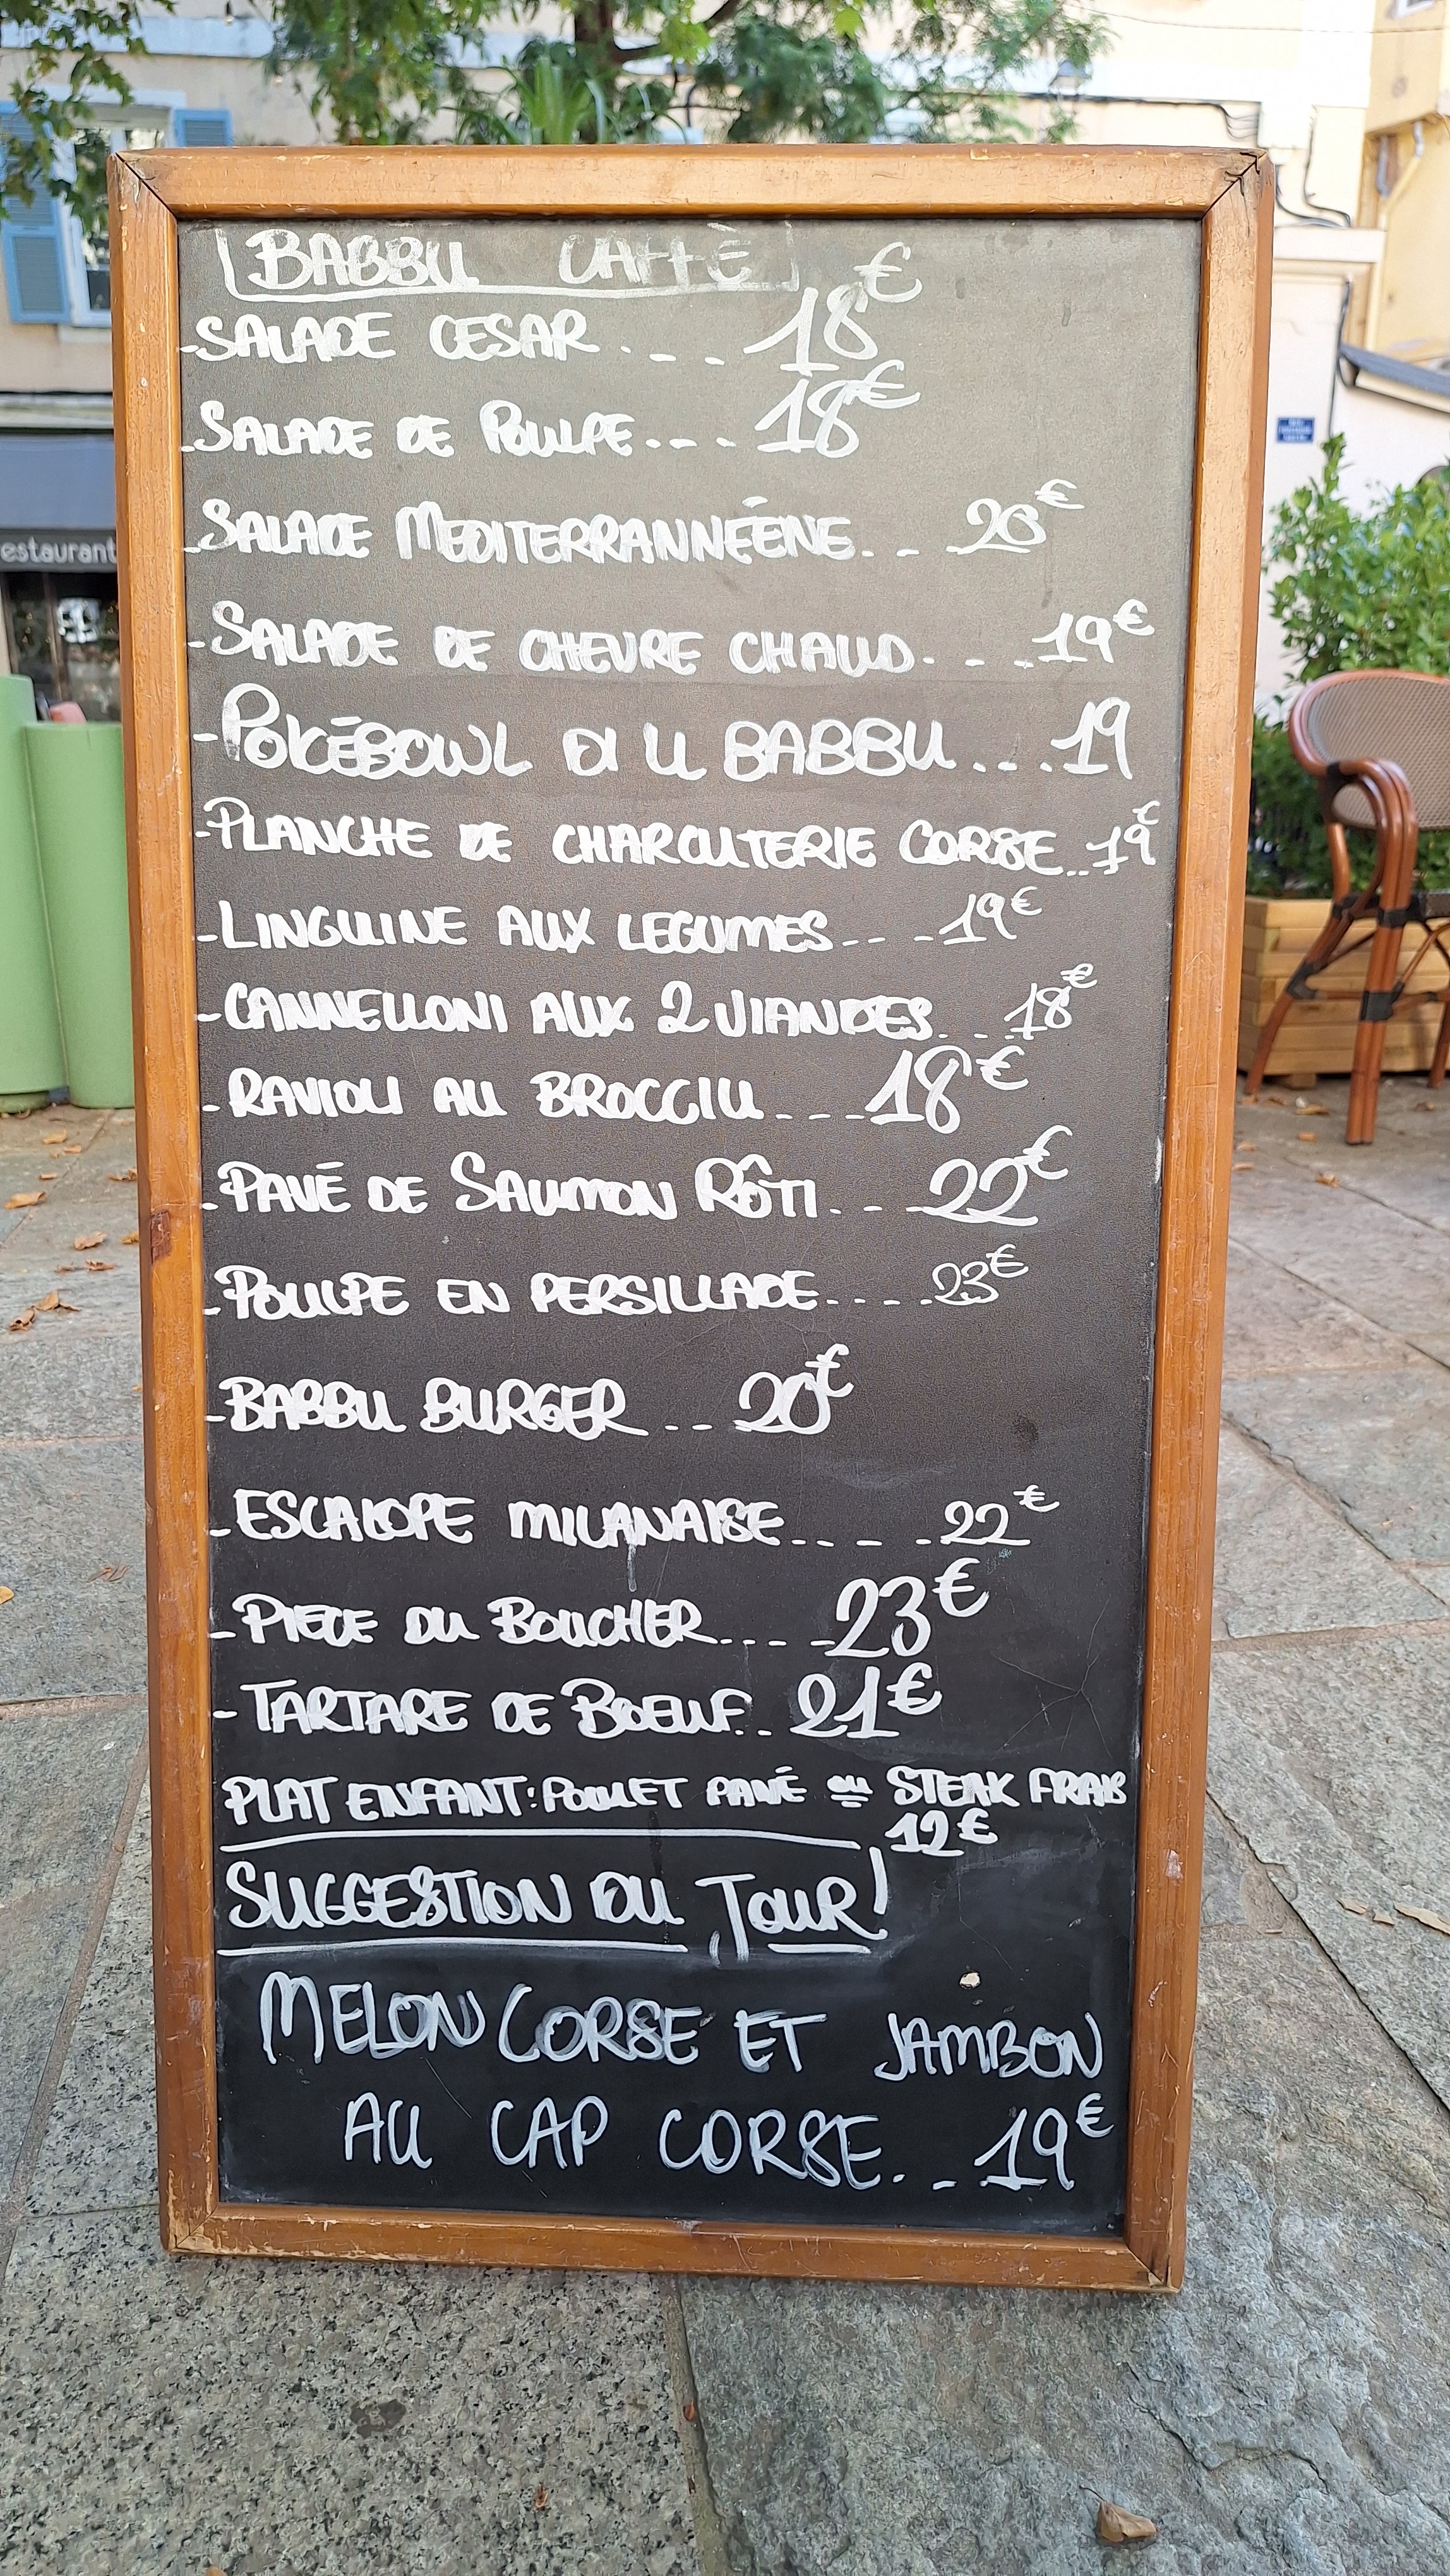 BABBU CAFFÈ
- SALADE CESAR . - - - 18€
- SALADE DE POULPE - - - - 18€
- SALADE MEDITERRANNÉENE - - - 20€
- SALADE DE CHEVRE CHAUD - - - 19€
- POKÉBOWL DU BABBU ... 19
- PLANCHE DE CHARCUTERIE CORSE .. 19€
- LINGUINE AUX LEGUMES - - - 19€
- CANNELLONI AUX 2 VIANDES - - - 18€
- RAVIOLI AU BROCCIU - - - 18€
- PAVÉ DE SAUMON RÔTI - - - 22€
- POULPE EN PERSILLADE - - - - 23€
- BABBU BURGER - - - 20€
- ESCALOPE MILANAISE - - - - 22€
- PIECE DU BOUCHER - - - - 23€
- TARTARE DE BOEUF .. 21€
PLAT ENFANT: POULET PANÉ ou STEAK FRAIS
12€
SUGGESTION DU JOUR!
MELON CORSE ET JAMBON
AU CAP CORSE - - 19€
estaurant